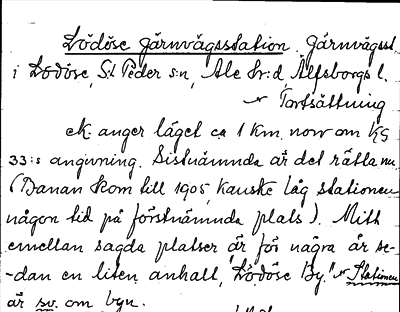 Lödöse järnvägsstation. Järnvägsst.
i Lödöse, S:t Peder s:n, Ale hr:d Älfsborgs l.
Fortsättning
ek. anger läget ca 1 km. nov om KG
33:s angivning. Sistnämnda är det rätta nu
(Banan kom till 1905, kanske låg stationen
någon tid på förstnämnda plats). Mitt
emellan sagda platser är för några år se-
-dan en liten anhalt, "Lödöse By." Stationen
är sv. om byn.